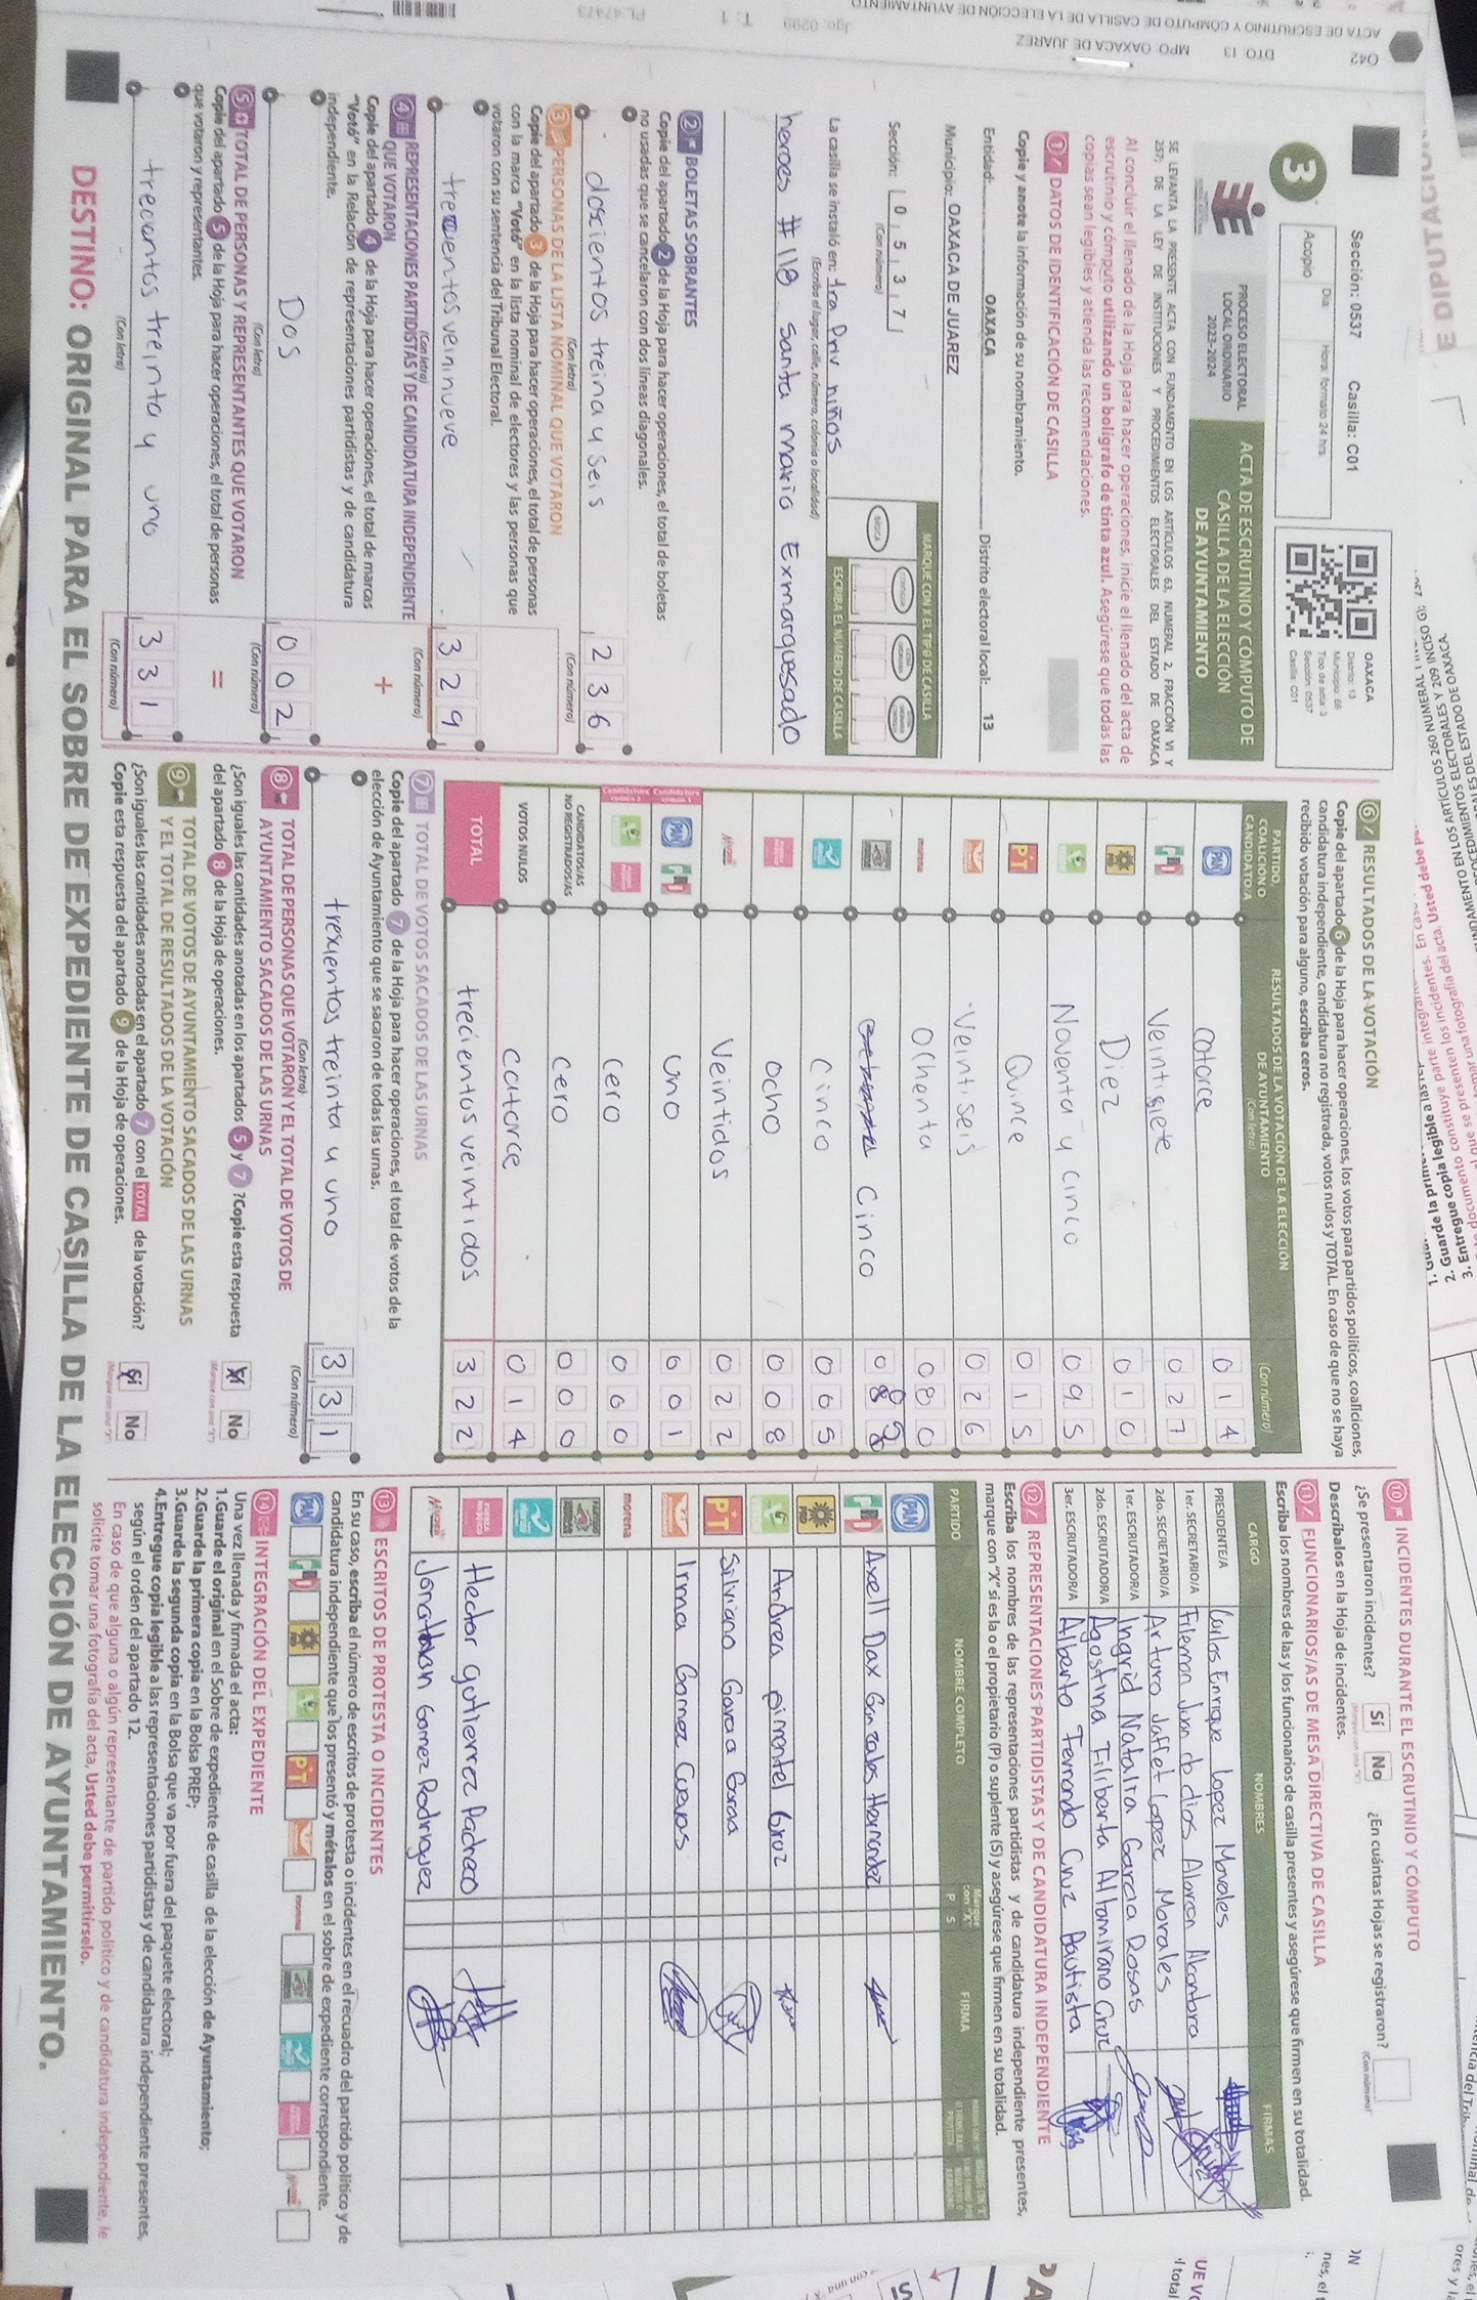 Sección: 0537 Casilla: C01
Día Hora: formato 24 hrs
Acopio
3
PROCESO ELECTORAL
LOCAL ORDINARIO
2023-2024
ACTA DE ESCRUTINIO Y CÓMPUTO DE
CASILLA DE LA ELECCIÓN
DE AYUNTAMIENTO
OAXACA
Distrito: 13
Municipio: 66
Tipo de acta: 3
Sección: 0537
Casilla: C01
SE LEVANTA LA PRESENTE ACTA CON FUNDAMENTO EN LOS ARTÍCULOS 63, NUMERAL 2, FRACCIÓN VI Y
257; DE LA LEY DE INSTITUCIONES Y PROCEDIMIENTOS ELECTORALES DEL ESTADO DE OAXACA
Al concluir el llenado de la Hoja para hacer operaciones, inicie el llenado del acta de
escrutinio y cómputo utilizando un bolígrafo de tinta azul. Asegúrese que todas las
copias sean legibles y atienda las recomendaciones.
1 DATOS DE IDENTIFICACIÓN DE CASILLA
Copie y anote la información de su nombramiento.
Entidad: OAXACA Distrito electoral local: 13
Municipio: OAXACA DE JUAREZ
Sección: 0 5 3 7
(Con número)
MARQUE CON X EL TIPO DE CASILLA
ESCRIBA EL NÚMERO DE CASILLA
La casilla se instaló en: 1ra Priv niños
(Escriba el lugar, calle, número, colonia o localidad)
heroes #118 santa maria Exmarquesado
2 BOLETAS SOBRANTES
Copie del apartado 2 de la Hoja para hacer operaciones, el total de boletas
no usadas que se cancelaron con dos líneas diagonales.
doscientos treina y seis 2 3 6
(Con letra) (Con número)
3 PERSONAS DE LA LISTA NOMINAL QUE VOTARON
Copie del apartado 3 de la Hoja para hacer operaciones, el total de personas
con la marca "Votó" en la lista nominal de electores y las personas que
votaron con su sentencia del Tribunal Electoral.
3 2 9
(Con letra) (Con número)
4 REPRESENTACIONES PARTIDISTAS Y DE CANDIDATURA INDEPENDIENTE
QUE VOTARON
Copie del apartado 4 de la Hoja para hacer operaciones, el total de marcas
"Votó" en la Relación de representaciones partidistas y de candidatura
independiente.
+
Dos 0 0 2
(Con letra) (Con número)
5 TOTAL DE PERSONAS Y REPRESENTANTES QUE VOTARON
Copie del apartado 5 de la Hoja para hacer operaciones, el total de personas
que votaron y representantes.
=
trecientos treinta y uno 3 3 1
(Con letra) (Con número)
6 RESULTADOS DE LA VOTACIÓN
Copie del apartado 6 de la Hoja para hacer operaciones, los votos para partidos políticos, coaliciones,
candidatura independiente, candidatura no registrada, votos nulos y TOTAL. En caso de que no se haya
recibido votación para alguno, escriba ceros.
PARTIDO,
COALICIÓN O
CANDIDATO/A
RESULTADOS DE LA VOTACIÓN DE LA ELECCIÓN
DE AYUNTAMIENTO
(Con letra) (Con número)
PAN catorce 0 1 4
PRI Veintisiete 0 2 7
PRD Diez 0 1 0
Noventa y cinco 0 9 5
PT Quince 0 1 5
Veintiseis 0 2 6
morena Ochenta 0 8 0
Cinco
Cinco 0 0 5
ocho 0 0 8
Veintidos 0 2 2
PAN PRI uno 0 0 1
cero 0 0 0
CANDIDATOS/AS
NO REGISTRADOS/AS cero 0 0 0
VOTOS NULOS catorce 0 1 4
TOTAL trecientos veintidos 3 2 2
7 TOTAL DE VOTOS SACADOS DE LAS URNAS
Copie del apartado 7 de la Hoja para hacer operaciones, el total de votos de la
elección de Ayuntamiento que se sacaron de todas las urnas.
trexientos treinta y uno 3 3 1
(Con letra) (Con número)
8 TOTAL DE PERSONAS QUE VOTARON Y EL TOTAL DE VOTOS DE
AYUNTAMIENTO SACADOS DE LAS URNAS
¿Son iguales las cantidades anotadas en los apartados 5 y 7 ?Copie esta respuesta
del apartado 8 de la Hoja de operaciones.
Sí No
9 TOTAL DE VOTOS DE AYUNTAMIENTO SACADOS DE LAS URNAS
Y EL TOTAL DE RESULTADOS DE LA VOTACIÓN
¿Son iguales las cantidades anotadas en el apartado 7 con el TOTAL de la votación?
Copie esta respuesta del apartado 9 de la Hoja de operaciones.
Sí No
10 INCIDENTES DURANTE EL ESCRUTINIO Y CÓMPUTO
¿Se presentaron incidentes? Sí No ¿En cuántas Hojas se registraron?
(Con número)
Descríbalos en la Hoja de incidentes.
11 FUNCIONARIOS/AS DE MESA DIRECTIVA DE CASILLA
Escriba los nombres de las y los funcionarios de casilla presentes y asegúrese que firmen en su totalidad.
CARGO NOMBRES FIRMAS
PRESIDENTE/A Carlos Enrique Lopez Morales
1er. SECRETARIO/A Filemon Juan de dios Alarcon
2do. SECRETARIO/A Arturo Jaffet Lopez Morales
1er. ESCRUTADOR/A Ingrid Natalia Garcia Rosas
2do. ESCRUTADOR/A Agostina Filiberta Altamirano Cruz
3er. ESCRUTADOR/A Alberto Fernando Cruz Bautista
12 REPRESENTACIONES PARTIDISTAS Y DE CANDIDATURA INDEPENDIENTE
Escriba los nombres de las representaciones partidistas y de candidatura independiente presentes,
marque con "X" si es la o el propietario (P) o suplente (S) y asegúrese que firmen en su totalidad.
PARTIDO NOMBRE COMPLETO Marque con "X" P S FIRMA
PAN
PRI Axell Dax Gonzales Hernandez
PRD
Andrea pimentel Cruz
PT Silviano Garcia Garcia
Irma Gomez Cuevas
morena
Hector Gutierrez Pacheco
Jonathan Gomez Rodriguez
13 ESCRITOS DE PROTESTA O INCIDENTES
En su caso, escriba el número de escritos de protesta o incidentes en el recuadro del partido político y de
candidatura independiente que los presentó y métalos en el sobre de expediente correspondiente.
14 INTEGRACIÓN DEL EXPEDIENTE
Una vez llenada y firmada el acta:
1.Guarde el original en el Sobre de expediente de casilla de la elección de Ayuntamiento;
2.Guarde la primera copia en la Bolsa PREP;
3.Guarde la segunda copia en la Bolsa que va por fuera del paquete electoral;
4.Entregue copia legible a las representaciones partidistas y de candidatura independiente presentes,
según el orden del apartado 12.
En caso de que alguna o algún representante de partido político y de candidatura independiente, le
solicite tomar una fotografía del acta, Usted debe permitírselo.
DESTINO: ORIGINAL PARA EL SOBRE DE EXPEDIENTE DE CASILLA DE LA ELECCIÓN DE AYUNTAMIENTO.
042 DTO 13 MPO: OAXACA DE JUAREZ
ACTA DE ESCRUTINIO Y CÓMPUTO DE CASILLA DE LA ELECCIÓN DE AYUNTAMIENTO